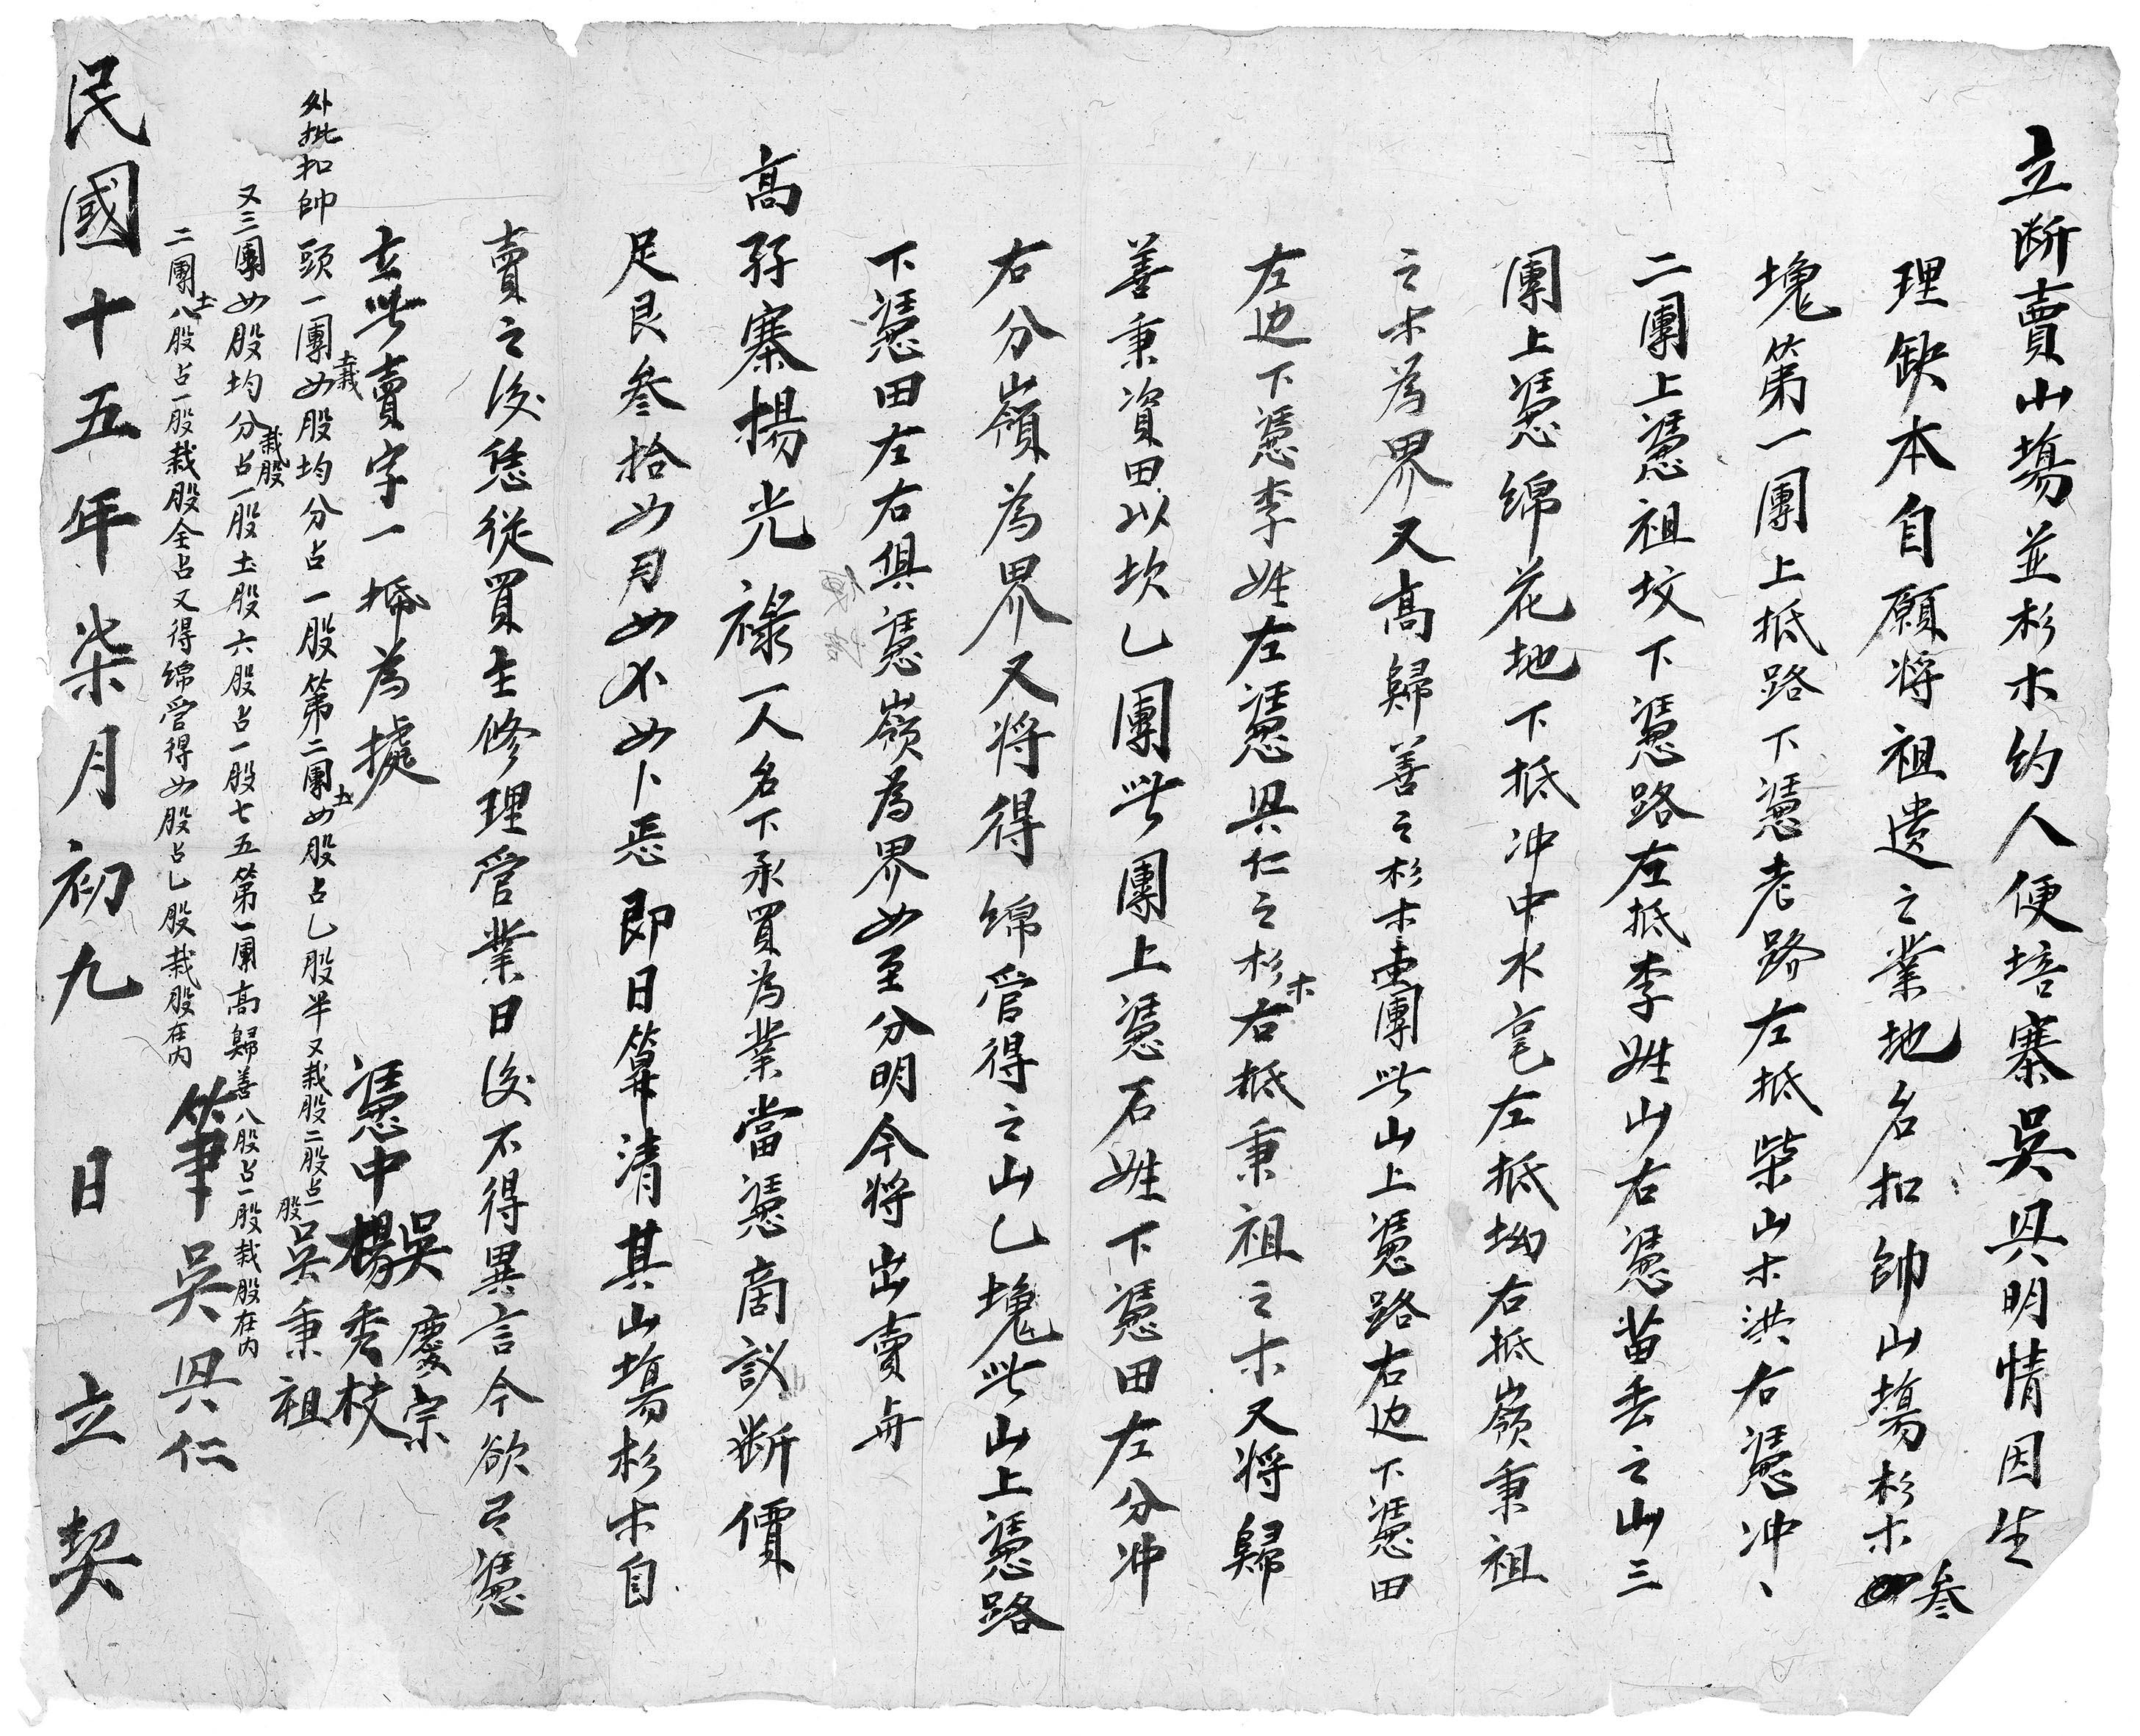 立断賣山塲並杉木约人便培寨吳具明情因生
理缺本自願将祖遗之業地名扣帥山塲杉木叁
塊第一團上抵路下慿老路左抵柴山木洪右慿冲、
二團上慿祖坟下慿路左抵李姓山右慿苗香之山三
團上慿绵花地下抵冲中水毫左抵坳右抵嶺秉祖
之木為界又髙歸善之杉木壹團此山上慿路右边下慿田
左边下慿李姓左慿具仁之杉木右抵秉祖之木又将歸
善秉資田以坎乙團此團上慿石姓下慿田左分冲
右分嶺為界又将得绵管得之山乙塊此山上慿路
下慿田左右俱慿嶺為界四至分明今将出賣与
髙孖寨楊光禄一人名下承買為業當慿啇議断價
足艮叁拾四月四不四卜㤙即日算清其山塲杉木自
賣之後恁從買主修理管業日後不得異言今欲有慿
立此賣字一㧊為據
慿中 吳慶宗
楊秀枝
吳秉祖
外批扣帥頭一團土栽四股均分占一股第二團土四股占乙股半又栽股二股占一股
又三團四股均分占一股栽股土股六股占一股七五第一團髙歸善八股占一股栽股在内
二團土八股占一股栽股全占又得绵管得四股占乙股栽股在内
筆 吳具仁
民國十五年柒月初九日立契